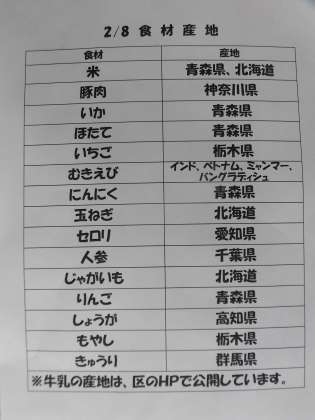 2/8 食材産地
食材 産地
米 青森県、北海道
豚肉 神奈川県
いか 青森県
ほたて 青森県
いちご 栃木県
むきえび インド、ベトナム、ミャンマー、
バングラディシュ
にんにく 青森県
玉ねぎ 北海道
セロリ 愛知県
人参 千葉県
じゃがいも 北海道
りんご 青森県
しょうが 高知県
もやし 栃木県
きゅうり 群馬県
※牛乳の産地は、区のHPで公開しています。